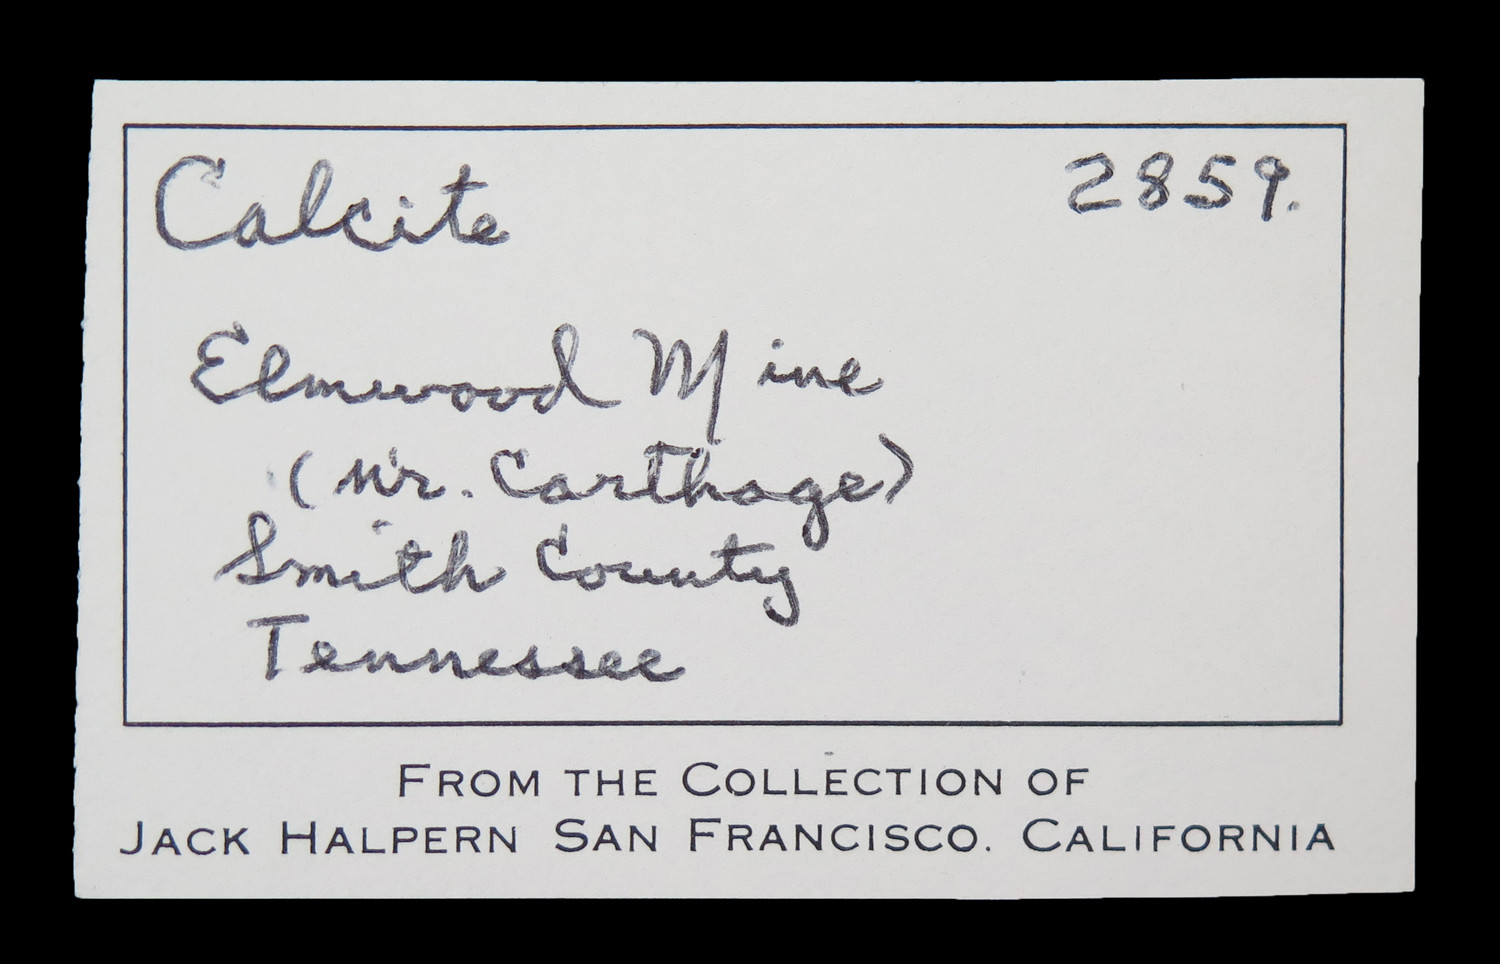 Calcite 2859.
Elmwood Mine
(Nr. Carthage)
Smith County
Tennessee
FROM THE COLLECTION OF
JACK HALPERN SAN FRANCISCO. CALIFORNIA